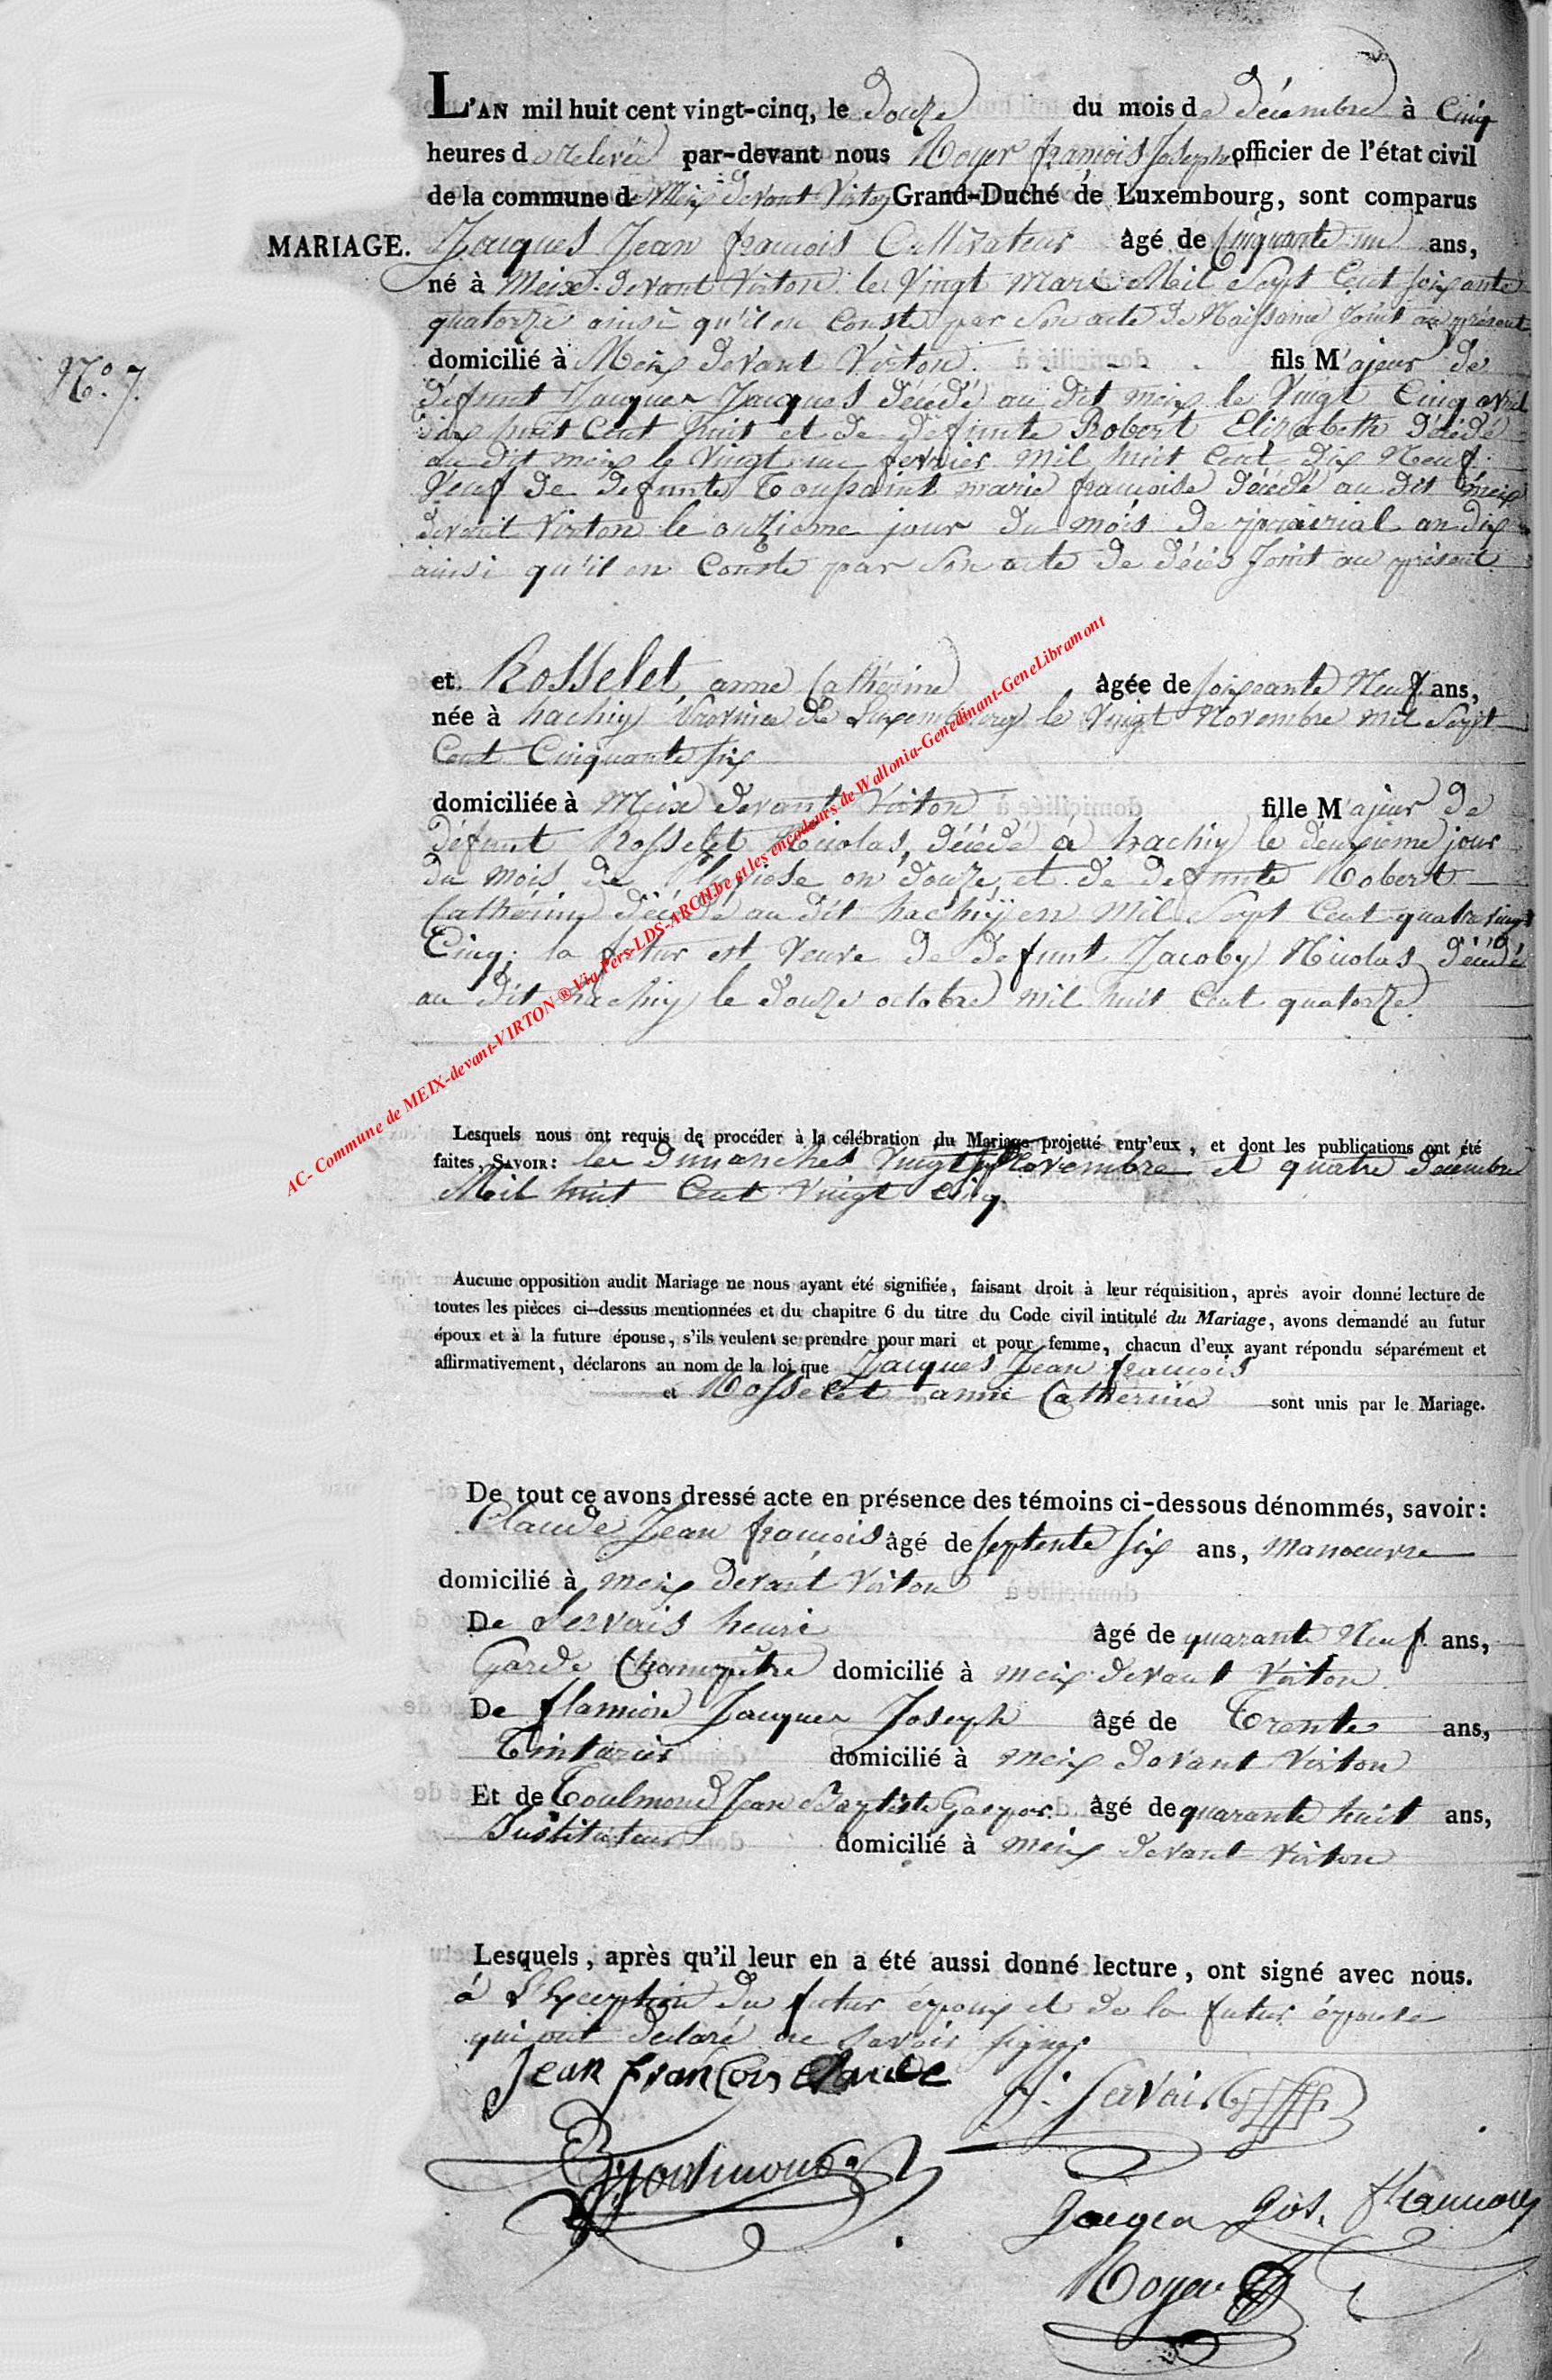 L'AN mil huit cent vingt-cinq, le Douze du mois de décembre à Cinq
heures de relevée par-devant nous Royer françois Joseph officier de l'état civil
de la commune de Meix devant Virton Grand-Duché de Luxembourg, sont comparus
MARIAGE. Jacques Jean françois Cultivateur âgé de Cinquante un ans,
né à Meix devant Virton le Vingt Mars Mil Sept Cent soixante
quatorze ainsi qu'il en Conste par son acte de Naissance Joint au présent
N.º 7.
domicilié à Meix devant Virton. fils Majeur de
défunt Jacques Jacques décédé au dit meix le Vingt Cinq avril
dix huit Cent huit et de défunte Robert Elisabeth décédé
au dit meix le Vingt un fevrier mil huit Cent dix Neuf.
Veuf de defunte Toussaint marie françoise décédé au dit meix
devant Virton le onzieme jour du mois de prairial an dix
ainsi qu'il en Conste par son acte de décès Joint au présent
et Rosselet anne Catherine âgée de soixante Neuf ans,
née à hachiy Province de Luxembourg le Vingt Novembre mil Sept
Cent Cinquante Six
domiciliée à Meix devant Virton fille Majeur de
défunt Rosselet Nicolas, décédé à hachiy le deuxieme jour
du mois de Pluviose an douze, et de defunte Robert
Catherine décédé au dit hachiy en Mil Sept Cent quatre vingt
Cinq; la futur est Veuve de defunt Jacoby Nicolas décédé
au dit hachiy le douze octobre mil huit Cent quatorze.
AC- Commune de MEIX-devant-VIRTON ® Via Pers-LDS-ARCH.be et les encodeurs de Wallonia-Genedinant-GeneLibramont
Lesquels nous ont requis de procéder à la célébration du Mariage projetté entr'eux, et dont les publications ont été
faites, SAVOIR: les Dimanches Vingt Novembre et quatre Decembre
Mil huit Cent Vingt Cinq.
Aucune opposition audit Mariage ne nous ayant été signifiée, faisant droit à leur réquisition, après avoir donné lecture de
toutes les pièces ci-dessus mentionnées et du chapitre 6 du titre du Code civil intitulé du Mariage, avons demandé au futur
époux et à la future épouse, s'ils veulent se prendre pour mari et pour femme, chacun d'eux ayant répondu séparément et
affirmativement, déclarons au nom de la loi que Jacques Jean françois
et Rosselet anne Catherine sont unis par le Mariage.
De tout ce avons dressé acte en présence des témoins ci-dessous dénommés, savoir:
Claude Jean françois âgé de septente six ans, Manoeuvre
domicilié à meix devant Virton
De Servais henri âgé de quarante Neuf ans,
Garde Champêtre domicilié à meix devant Virton.
De flamion Jacques Joseph âgé de Trente ans,
Tinturier domicilié à meix devant Virton
Et de Toulmond Jean Baptiste Gaspar. âgé de quarante huit ans,
Instituteur domicilié à meix devant Virton
Lesquels, après qu'il leur en a été aussi donné lecture, ont signé avec nous.
à L'Exception du futur époux et de la futur épouse
qui ont declaré ne Savoir signer
Jean françois Claude
h. Servais
Toulmond
Jacques Jos. flamion
Royer